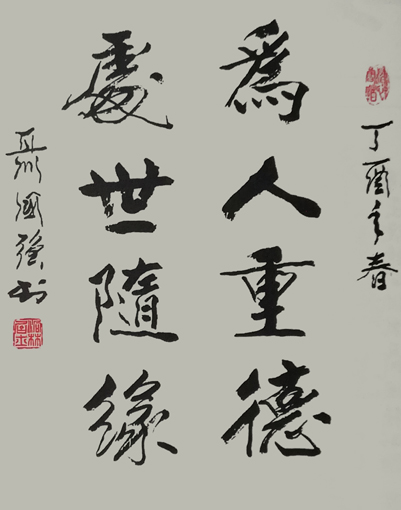 丁酉年春
為人重德
處世隨緣
聶國強书